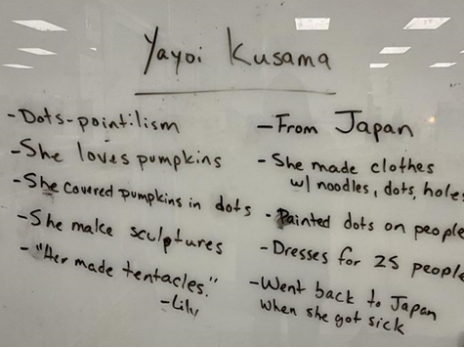 Yayoi Kusama
- Dots-pointilism
- She loves pumpkins
- She covered pumpkins in dots
- She make sculptures
- "Her made tentacles."
- Lily
- From Japan
- She made clothes
w/ noodles, dots, holes
- Painted dots on people
- Dresses for 25 people
- Went back to Japan
when she got sick